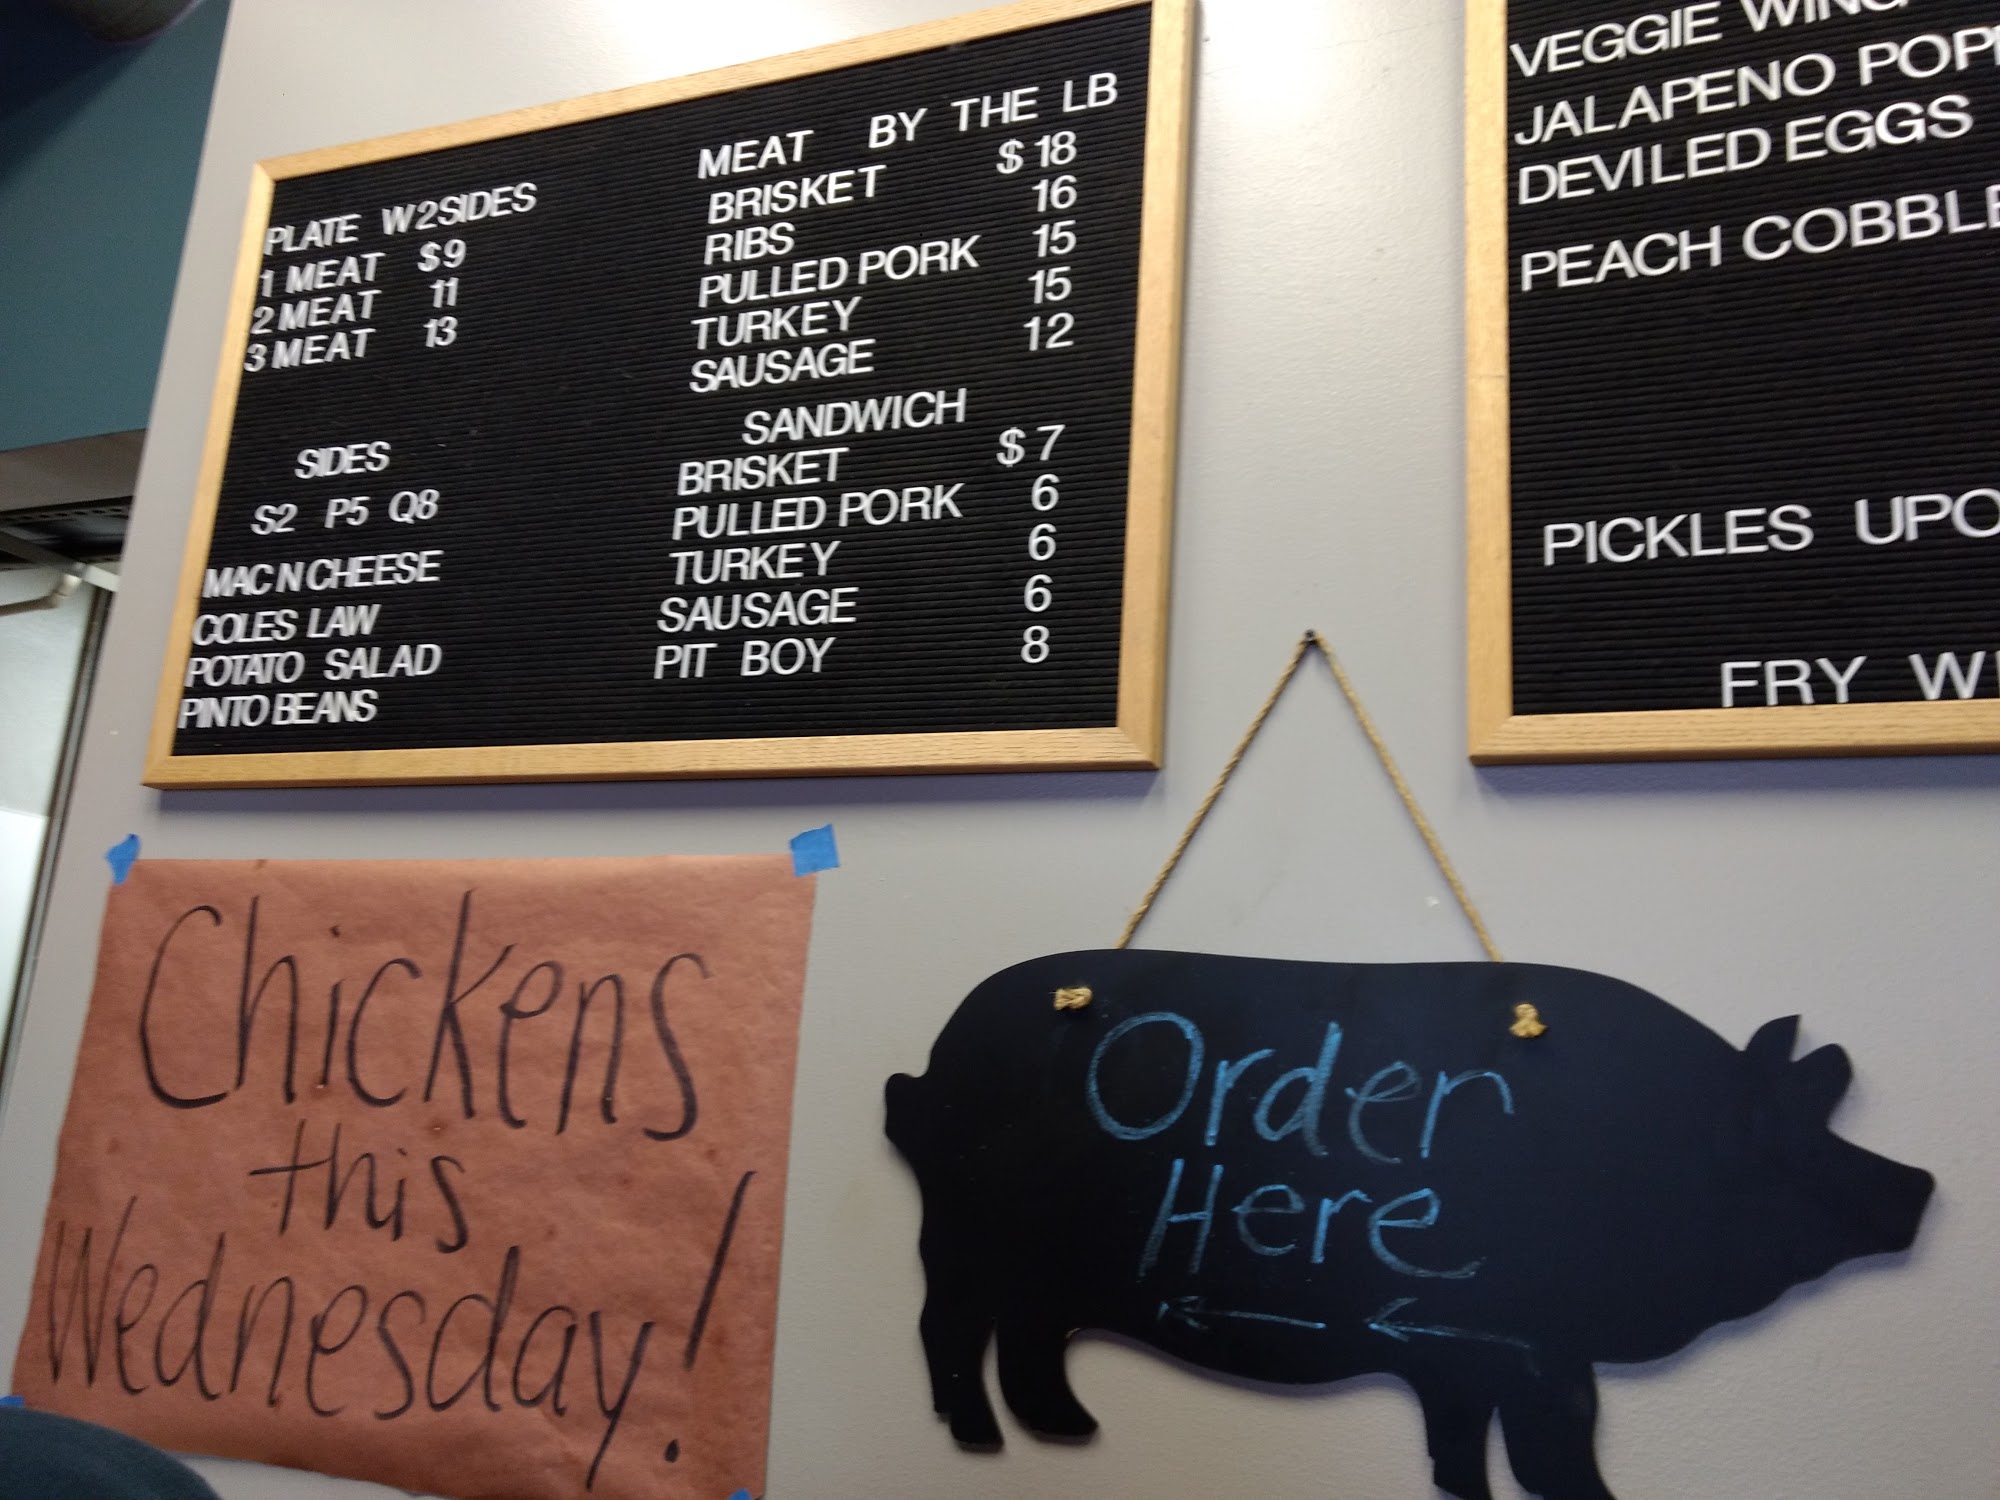 PLATE W2SIDES
1 MEAT $9
2 MEAT 11
3 MEAT 13
SIDES
S2 P5 Q8
MAC N CHEESE
COLES LAW
POTATO SALAD
PINTO BEANS
MEAT BY THE LB
BRISKET $18
RIBS 16
PULLED PORK 15
TURKEY 15
SAUSAGE 12
SANDWICH
BRISKET $7
PULLED PORK 6
TURKEY 6
SAUSAGE 6
PIT BOY 8
VEGGIE
JALAPENO
DEVILED EGGS
PEACH
PICKLES
FRY
Chickens
this
Wednesday!
Order
Here